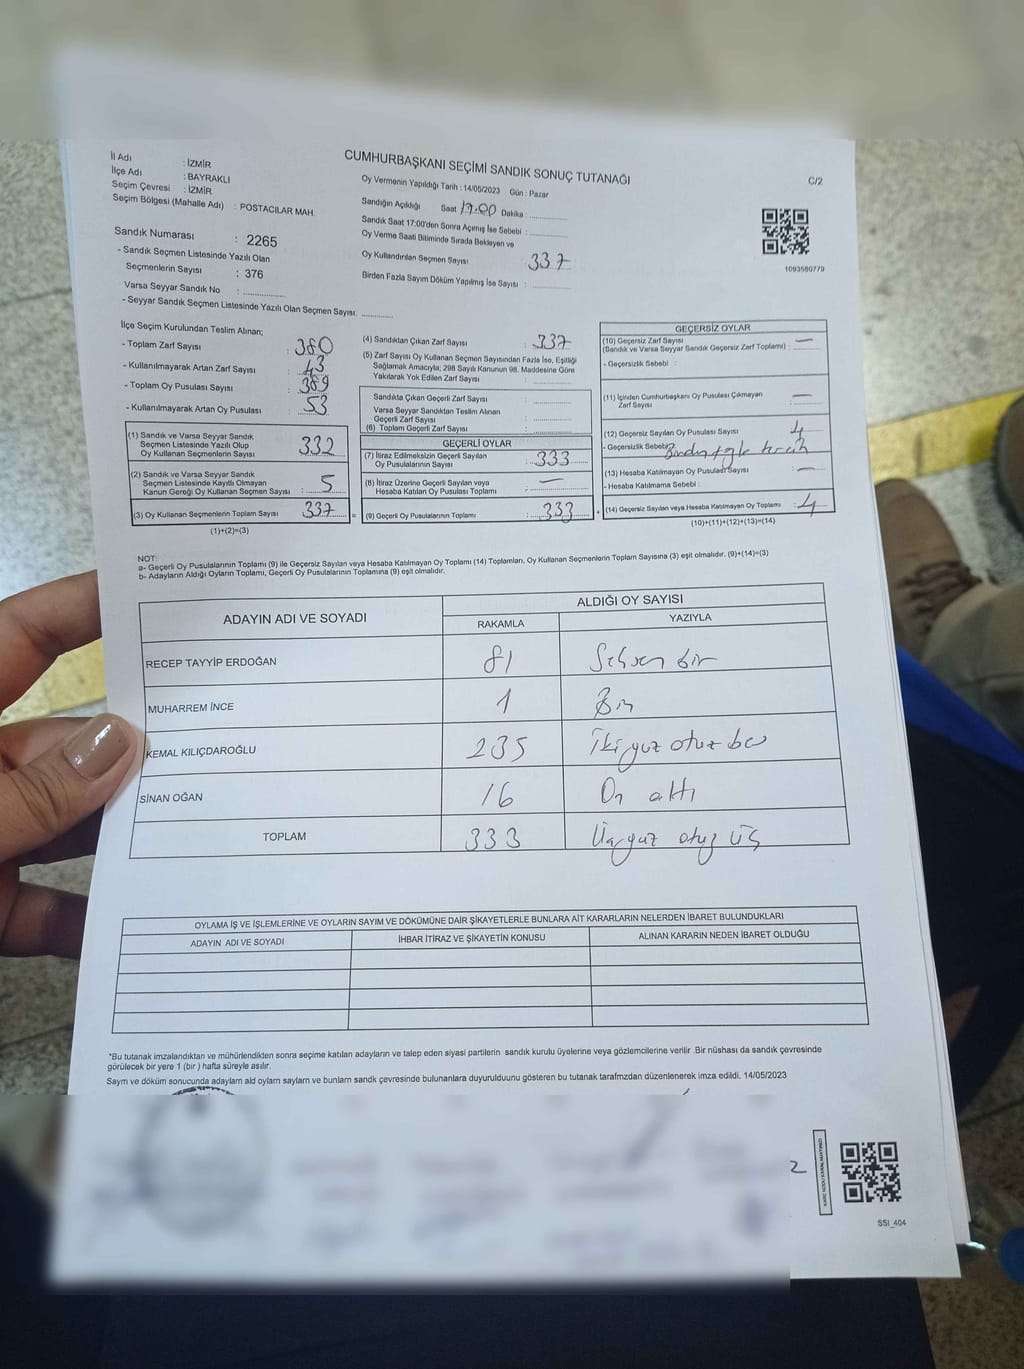 CUMHURBAŞKANI SEÇİMİ SANDIK SONUÇ TUTANAĞI
C/2
İl Adı : İZMİR
İlçe Adı : BAYRAKLI
Seçim Çevresi : İZMİR
Seçim Bölgesi (Mahalle Adı) : POSTACILAR MAH.
Sandık Numarası : 2265
- Sandık Seçmen Listesinde Yazılı Olan
Seçmenlerin Sayısı : 376
Varsa Seyyar Sandık No :
- Seyyar Sandık Seçmen Listesinde Yazılı Olan Seçmen Sayısı:
Oy Vermenin Yapıldığı Tarih : 14/05/2023 Gün : Pazar
Sandığın Açıldığı Saat 17.00 Dakika :
Sandık Saat 17:00'den Sonra Açmış İse Sebebi :
Oy Verme Saati Bitiminde Sırada Bekleyen ve
Oy Kullandırılan Seçmen Sayısı : 337
Birden Fazla Sayım Döküm Yapılmış İse Sayısı :
1093560779
İlçe Seçim Kurulundan Teslim Alınan;
- Toplam Zarf Sayısı : 380
- Kullanılmayarak Artan Zarf Sayısı : 43
- Toplam Oy Pusulası Sayısı : 389
- Kullanılmayarak Artan Oy Pusulası : 53
(1) Sandık ve Varsa Seyyar Sandık
Seçmen Listesinde Yazılı Olup
Oy Kullanan Seçmenlerin Sayısı : 332
(2) Sandık ve Varsa Seyyar Sandık
Seçmen Listesinde Kayıtlı Olmayan
Kanun Gereği Oy Kullanan Seçmen Sayısı : 5
(3) Oy Kullanan Seçmenlerin Toplam Sayısı : 337
(1)+(2)=(3)
(4) Sandıktan Çıkan Zarf Sayısı : 337
(5) Zarf Sayısı Oy Kullanan Seçmen Sayısından Fazla İse, Eşitliği
Sağlamak Amacıyla; 298 Sayılı Kanunun 98. Maddesine Göre
Yakılarak Yok Edilen Zarf Sayısı :
Sandıkta Çıkan Geçerli Zarf Sayısı :
Varsa Seyyar Sandıktan Teslim Alınan
Geçerli Zarf Sayısı :
(6) Toplam Geçerli Zarf Sayısı :
GEÇERLİ OYLAR
(7) İtiraz Edilmeksizin Geçerli Sayılan
Oy Pusulalarının Sayısı : 333
(8) İtiraz Üzerine Geçerli Sayılan veya
Hesaba Katılan Oy Pusulası Toplamı : —
(9) Geçerli Oy Pusulalarının Toplamı : 333
GEÇERSİZ OYLAR
(10) Geçersiz Zarf Sayısı
(Sandık ve Varsa Seyyar Sandık Geçersiz Zarf Toplamı) : —
- Geçersizlik Sebebi :
(11) İçinden Cumhurbaşkanı Oy Pusulası Çıkmayan
Zarf Sayısı : —
(12) Geçersiz Sayılan Oy Pusulası Sayısı : 4
- Geçersizlik Sebebi :
(13) Hesaba Katılmayan Oy Pusulası Sayısı : —
- Hesaba Katılmama Sebebi :
(14) Geçersiz Sayılan veya Hesaba Katılmayan Oy Toplamı : 4
(10)+(11)+(12)+(13)=(14)
NOT:
a- Geçerli Oy Pusulalarının Toplamı (9) ile Geçersiz Sayılan veya Hesaba Katılmayan Oy Toplamı (14) Toplamları, Oy Kullanan Seçmenlerin Toplam Sayısına (3) eşit olmalıdır. (9)+(14)=(3)
b- Adayların Aldığı Oyların Toplamı, Geçerli Oy Pusulalarının Toplamına (9) eşit olmalıdır.
ADAYIN ADI VE SOYADI ALDIĞI OY SAYISI
RAKAMLA YAZIYLA
RECEP TAYYİP ERDOĞAN 81 Seksen bir
MUHARREM İNCE 1 Bir
KEMAL KILIÇDAROĞLU 235 İkiyüz otuz beş
SİNAN OĞAN 16 On altı
TOPLAM 333 Üçyüz otuz üç
OYLAMA İŞ VE İŞLEMLERİNE VE OYLARIN SAYIM VE DÖKÜMÜNE DAİR ŞİKAYETLERLE BUNLARA AİT KARARLARIN NELERDEN İBARET BULUNDUKLARI
ADAYIN ADI VE SOYADI İHBAR İTİRAZ VE ŞİKAYETİN KONUSU ALINAN KARARIN NEDEN İBARET OLDUĞU
*Bu tutanak imzalandıktan ve mühürlendikten sonra seçime katılan adayların ve talep eden siyasi partilerin sandık kurulu üyelerine veya gözlemcilerine verilir .Bir nüshası da sandık çevresinde
görülecek bir yere 1 (bir ) hafta süreyle asılır.
Sayım ve döküm sonucunda adayların ald oyların sayların ve bunların sandk çevresinde bulunanlara duyurulduunu gösteren bu tutanak tarafmzdan düzenlenerek imza edildi. 14/05/2023
2
SSI_404